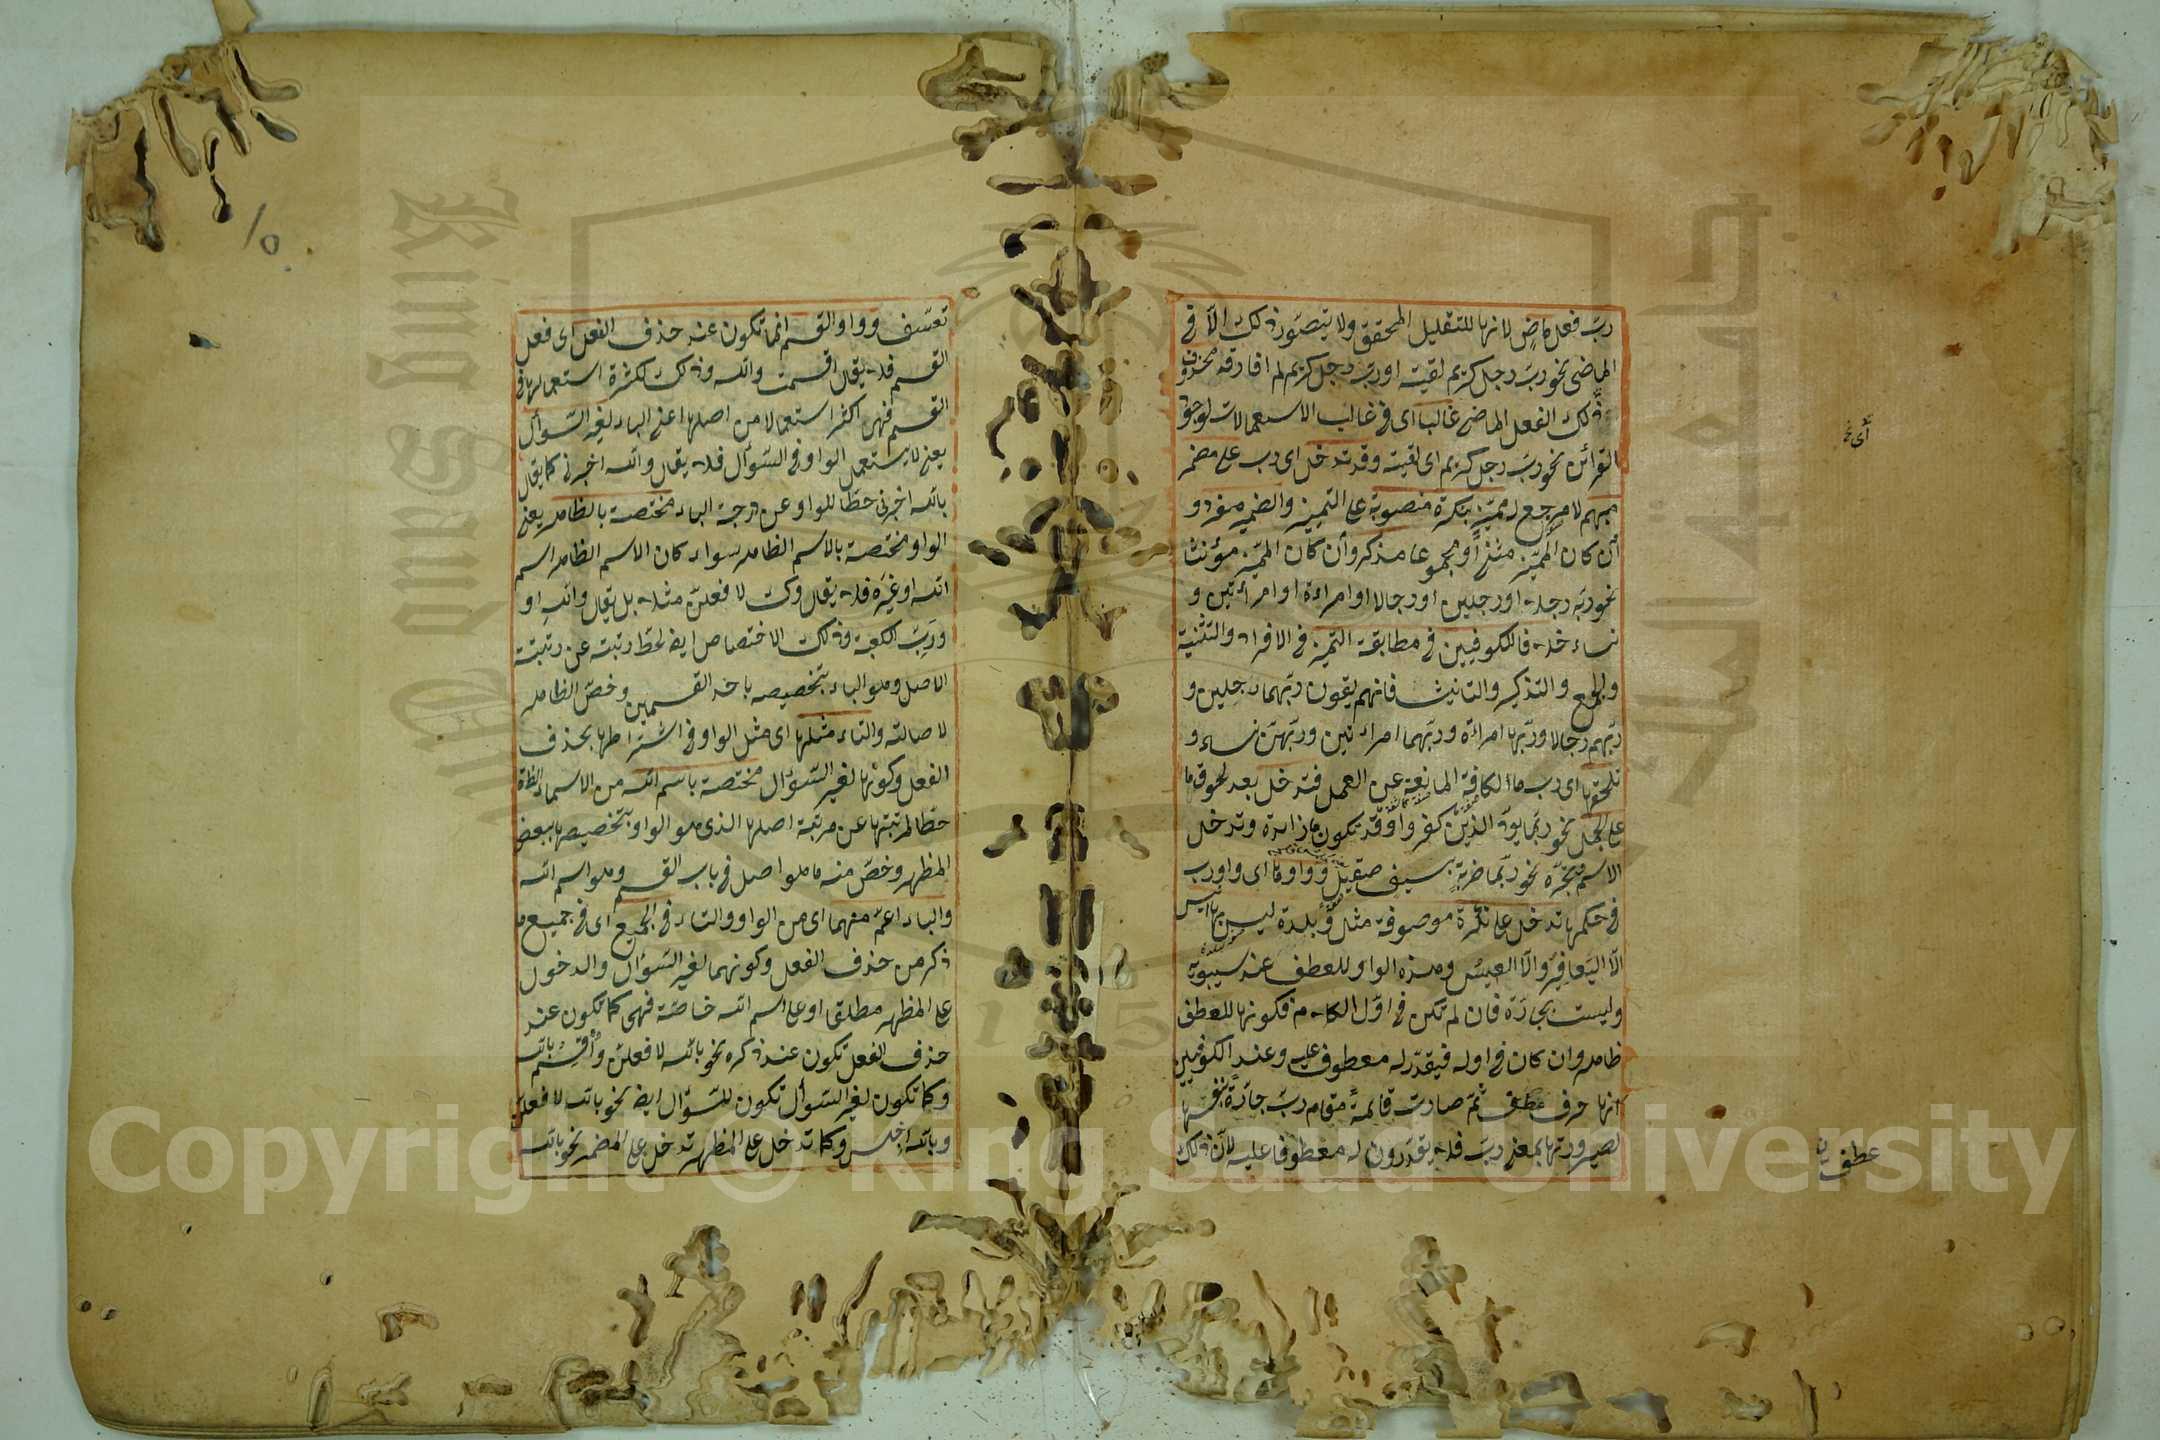 ربّ فعل ماضٍ لانها للتقليل المحقق ولا يتصوّر ذلك الّا في
الماضي نحو ربّ رجل كريم لقيته او ربّ رجل كريم لم افارقه محذوف
ذلك الفعل الماضي غالبا اى في غالب الاستعمالات لوجود
القرائن نحو ربّ رجل كريم اى لقيته وقد تدخل اى رب على مضمر
مبهم لا مرجع له مميّز بنكرة منصوبة على التميز والضمير مفرد و
أن كان المميّز مثنى أو مجموعا مذكر وأن كان المميّز مؤنثا
نحو ربّه رجلا او رجلين او رجالا او امراءة او امراءتين و
نساء خلافا للكوفيين في مطابقة التميز في الافراد والتثنية
والجمع والتذكير والتانيث فانهم يقون ربّهما رجلين و
ربّهم رجالا وربّها امراءة وربّهما امراءتين وربّهنّ نساء و
تلحقها اى رب ما الكافة المانعة عن العمل فتدخل بعد لحوق ما
على الجمل نحو ربّما يودّ الذين كفروا وقد تكون ما زايدة وتدخل
الاسم وتجرّه نحو ربّما ضربةٍ بسيف صقيل وواوها اى واو رب
في حكمها تدخل على نكرة موصوفة مثل وبلدة ليس بها انيس
الّا اليعافِرُ والّا العيسُ وهذه الواو للعطف عند سيبويه
وليست بجارّة فان لم تكن في اوّل الكلام فكونها للعطف
ظاهر وان كان في اوله فيقدّر له معطوف عليه وعند الكوفيين
انها حرف عطف ثمّ صارت قائمةً مقام ربّ جارّة بنفسها
لصيرورتها بمعنى ربّ فلا يقدّرون له معطوفا عليه لانّ ذلك
أى
عطف
تعسّف وواو القسم انما تكون عند حذف الفعل اى فعل
القسم فلا يقال اقسمت والله وذلك لكثرة استعمالها في
القسم فهى اكثر استعمالا من اصلها اعنى الباء لغير السّوأل
يعنى لا يستعمل الواو في السّوأل فلا يقال والله اخبرنى كما يقال
بالله اخبرنى حطّا للواو عن درجة الباء مختصة بالظاهر يعنى
الواو مختصة بالاسم الظاهر سواء كان الاسم الظاهر اسم
الله او غيره فلا يقال وك لا فعلنّ مثلا بل يقال والله او
وربّ الكعبة وذلك الاختصاص ايضا لحطّ رتبته عن رتبة
الاصل وهو الباء بتخصيصه باحد القسمين وخصّ الظاهر
لاصالته والتاء مثلها اى مثل الواو في اشتراطها بحذف
الفعل وكونها لغير السّؤال مختصة باسم الله من الاسماء الظاهرة
حطّا لمرتبتها عن مرتبة اصلها الذى هو الواو بتخصيصها ببعض
المظهر وخصّ منه ما هو اصل في باب القسم وهو اسم الله
والباء اعمّ منهما اى من الواو والتاء في الجميع اى في جميع ما
ذكر من حذف الفعل وكونهما لغير السّوأل والدخول
على المظهر مطلقا او على اسم الله خاصّة فهى كما تكون عند
حذف الفعل تكون عند ذكره نحو بالله لا فعلنّ وأقسم بالله
وكما تكون لغير السّوأل تكون للسّؤال ايضا نحو بالله لا فعلنّ
وبالله اجلس وكما تدخل على المظهر تدخل على المضمر نحو بالله
١٥
King Saud University
1957
Copyright © King Saud University